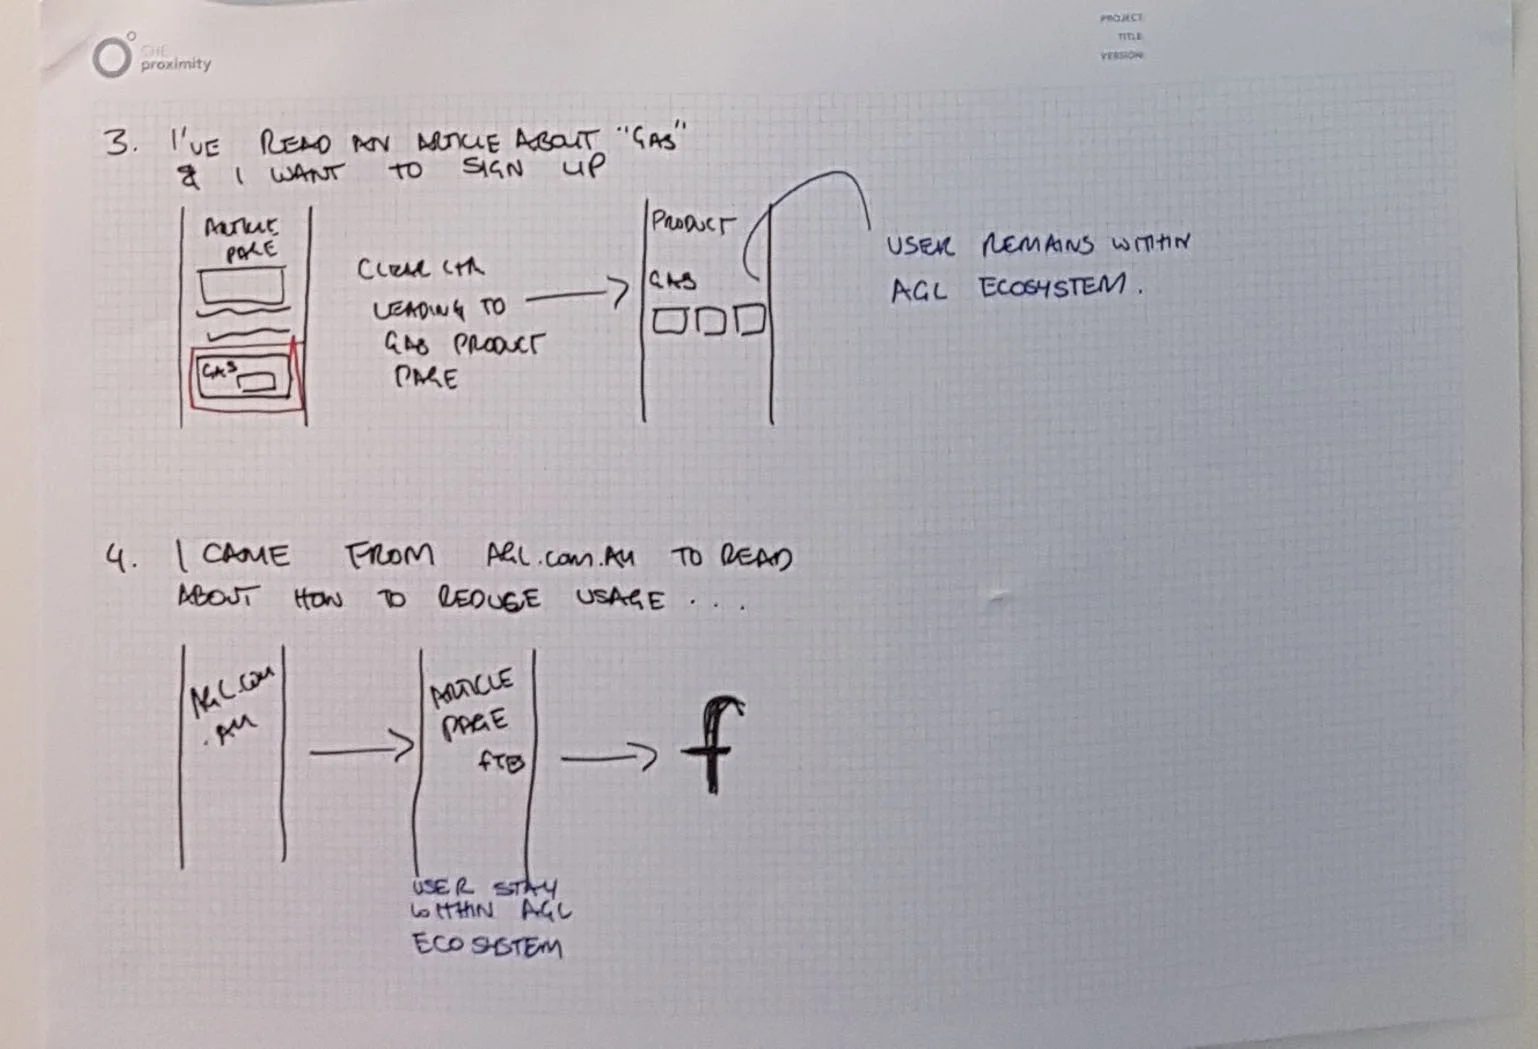 CHE
proximity
PROJECT
TITLE
VERSION
3. I'VE READ AN ARTICLE ABOUT "GAS"
& I WANT TO SIGN UP
ARTICLE
PAGE
GAS
CLEAR CTA
LEADING TO
GAS PRODUCT
PAGE
PRODUCT
GAS
USER REMAINS WITHIN
AGL ECOSYSTEM.
4. I CAME FROM AGL.COM.AU TO READ
ABOUT HOW TO REDUCE USAGE ...
AGL.COM
.AU
ARTICLE
PAGE
FTB
f
USER STAY
WITHIN AGL
ECOSYSTEM